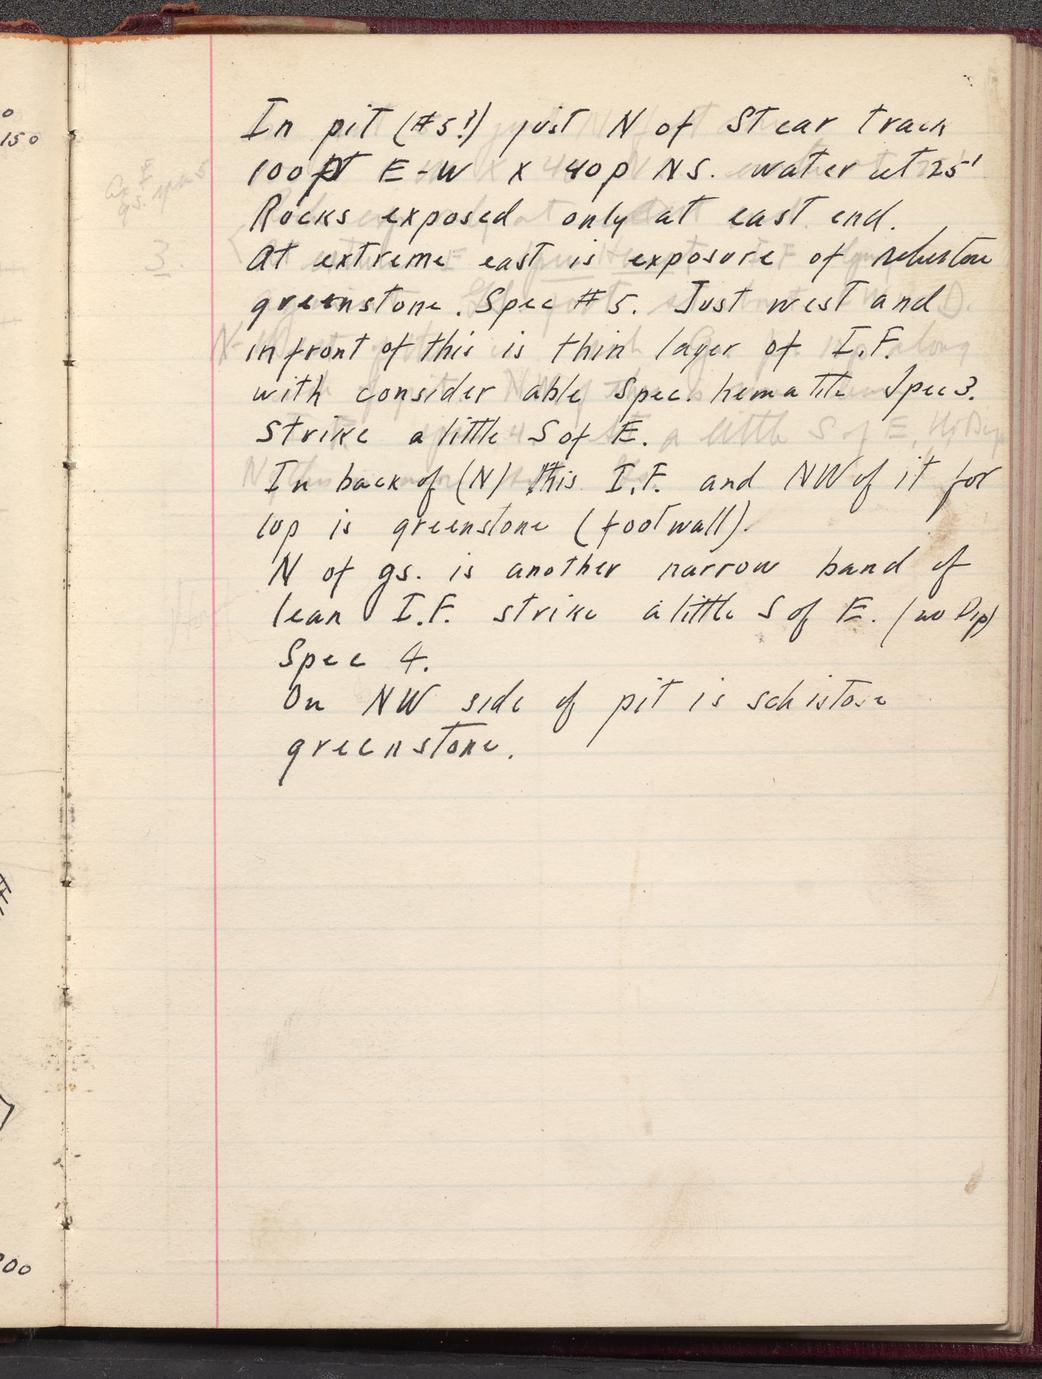 150
In pit (#5?) just N of St car track
100p E-W x 40p NS. water at 25'
Rocks exposed only at east end.
At extreme east is exposure of
greenstone. Spec #5. Just west and
in front of this is thin layer of I.F.
with considerable Spec. hematite Spec 3.
Strike a little S of E.
In back of (N) this I.F. and NW of it for
10p is greenstone (footwall).
N of gs. is another narrow band of
lean I.F. strike a little S of E. (no Dip)
Spec 4.
On NW side of pit is schistose
greenstone.
3
00